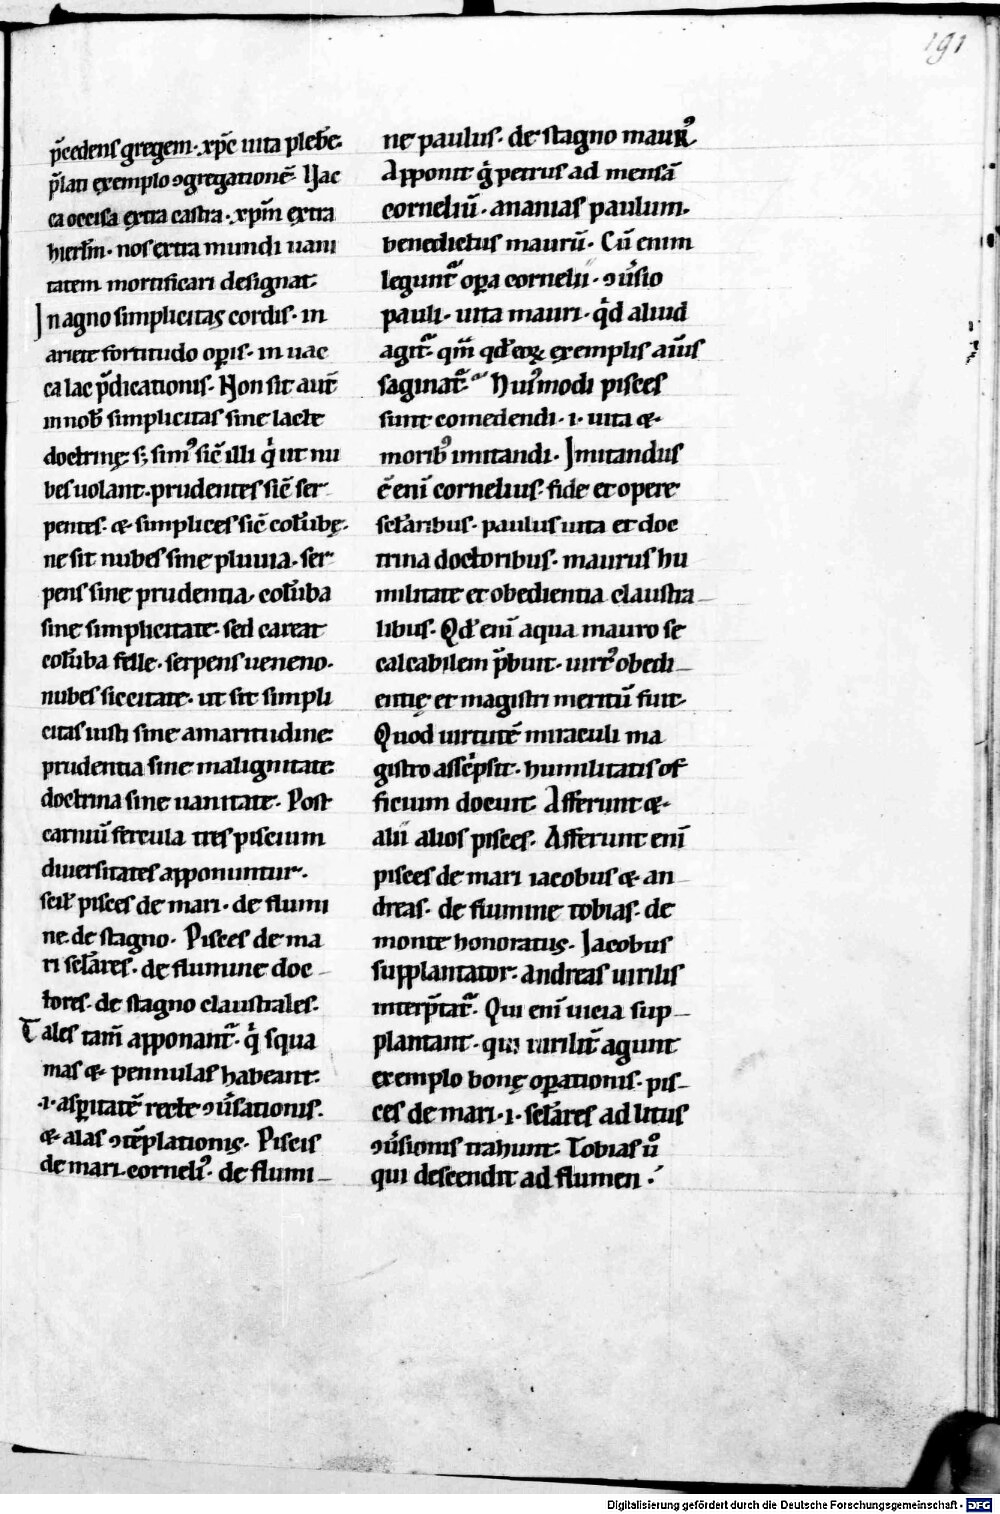 191
p̄cedens gregem· xp̄c uita plebē·
p̄lati exemplo ꝯgregationē· Uac
ca occisa extra castra· xpm̄ extra
hierłm· nos extra mundi uani
tatem mortificari designat·
In agno simplicitas cordis· in
ariete fortitudo oꝑis· in uac
ca lac p̄dicationis· Non sit aut̄
in nob̄ simplicitas sine lacte
doctrinę· s; simꝰ sic̄ illi qͥ ut nu
bes uolant· prudentes sic̄ ser
pentes· & simplices sic̄ colūbę·
ne sit nubes sine pluuia· ser
pens sine prudentia, colūba
sine simplicitate· sed careat
colūba felle· serpens ueneno·
nubes siccitate· ut sit simpli
citas iusti sine amaritudine·
prudentia sine malignitate·
doctrina sine uanitate· Post
carniū fercula tres piscium
diuersitates apponuntur·
scił pisces de mari· de flumi
ne· de stagno· Pisces de ma
ri sclāres· de flumine doc
tores· de stagno claustrales·
Tales tam̄ apponantᷣ· qͥ squa
mas & pennulas habeant·
·i· asꝑitatē recte ꝯūsationis·
& alas ꝯtēplationis· Piscis
de mari corneliꝰ· de flumi
ne paulus· de stagno maurꝰ
Apponit gͥ petrus ad mensā
corneliū· ananias paulum·
benedictus maurū· Cū enim
leguntᷣ oꝑa cornelii· ꝯūsio
pauli· uita mauri· qͥd aliud
agitᷣ· qm̄ qđ eoꝝ exemplis aīus
saginatᷣ· Huiꝰmodi pisces
sunt comedendi· i· uita &
moribꝰ imitandi· Imitandus
ē enī cornelius· fide et opere
sclāribus· paulus uita et doc
trina doctoribus· maurus hu
militate et obedientia claustra
libus· Qđ enī aqua mauro se
calcabilem p̄buit· uirtꝰ obedi
entię et magistri meritū fuit·
Quod uirtutē miraculi ma
gistro asscͥpsit· humilitatis of
ficium docuit· Afferunt &
alii alios pisces· Afferunt enī
pisces de mari iacobus & an
dreas· de flumine tobias· de
monte honoratus· Jacobus
supplantator· andreas uirilis
interp̄tatᷣ· Qui enī uicia sup
plantant· qui uirilit̄ agunt
exemplo bonę oꝑationis· pis
ces de mari· i· sclāres ad litus
ꝯūsionis trahunt· Tobias ūo
qui descendit ad flumen·
Digitalisierung gefördert durch die Deutsche Forschungsgemeinschaft - DFG